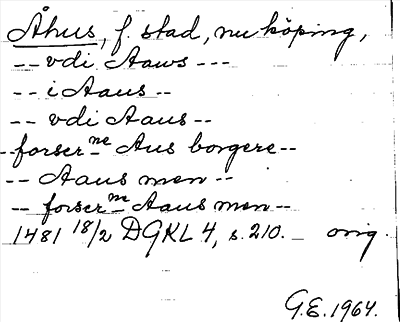 Åhus, f. stad, nu köping,
-- vdi Aaws ---
-- i Aaus --
-- vdi Aaus --
-- forser^ne Aus borgere --
-- Aaus men --
-- forser^ne Aaus men --
1481 18/2 DGKL 4, s. 210. orig.
G.E. 1964.